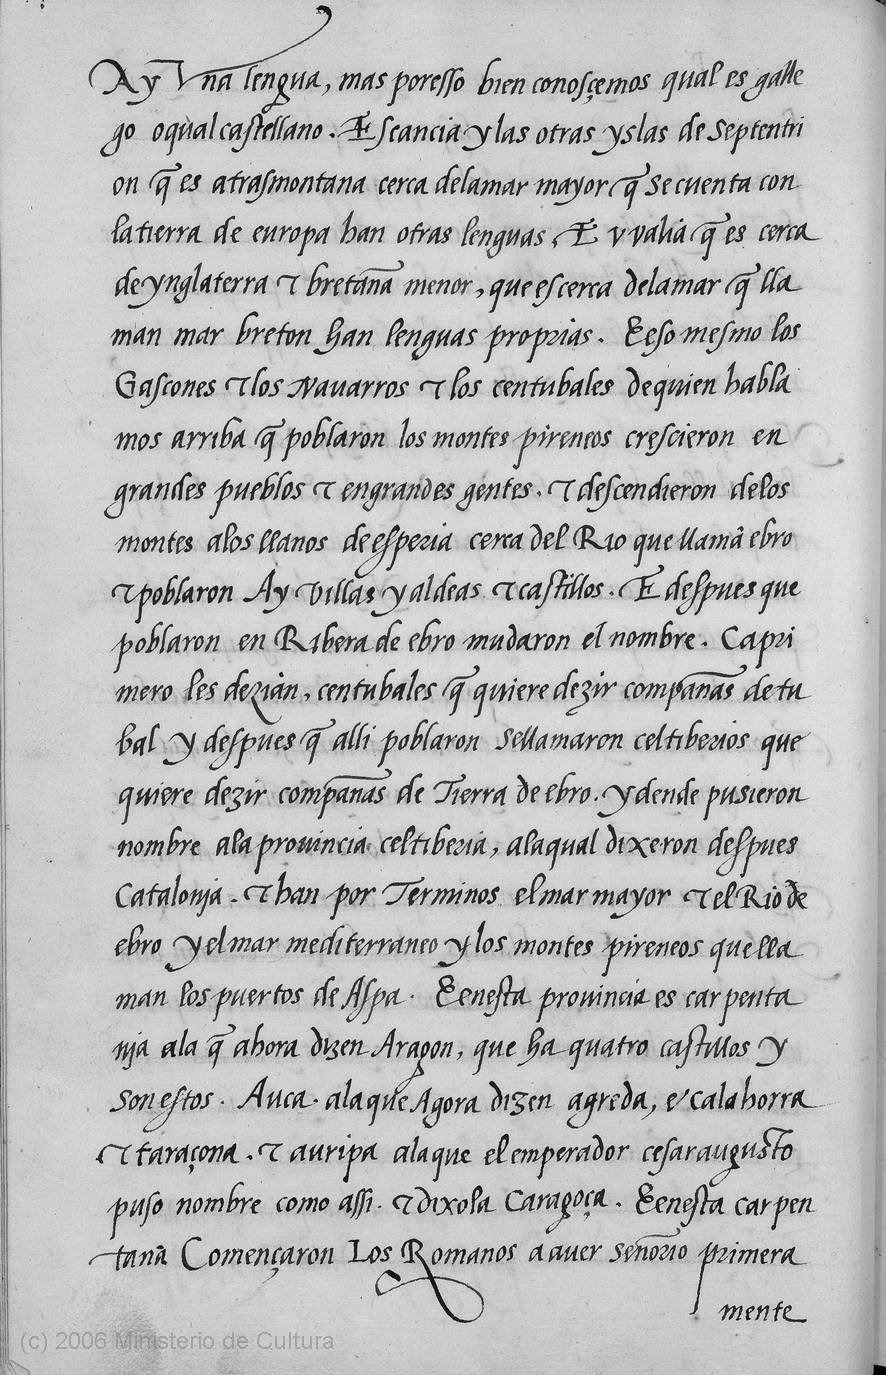 Ay vna lengua, mas poresso bien conosçemos qual es galle
go oqual castellano. E Scancia y las otras yslas de Septentri
on q̃ es atrasmontana cerca delamar mayor q̃ se cuenta con
latierra de europa han otras lenguas, E vvalia q̃ es cerca
de ynglaterra & bretan̄a menor, que es cerca delamar q̃ lla
man mar breton han lenguas proprias. E eso mesmo los
Gascones & los Nauarros & los centubales dequien habla
mos arriba q̃ poblaron los montes pireneos crescieron en
grandes pueblos & engrandes gentes. & descendieron delos
montes alos llanos de esperia cerca del Rio que llamā ebro
& poblaron Ay Villas y aldeas & castillos. E despues que
poblaron en Ribera de ebro mudaron el nombre. Capri
mero les dezian, centubales q̃ quiere dezir compan̄as de tu
bal y despues q̃ alli poblaron sellamaron celtiberios que
quiere dezir compan̄as de Tierra de ebro. y dende pusieron
nombre ala prouincia celtiberia, alaqual dixeron despues
Catalonja. & han por Terminos elmar mayor & el Rio de
ebro y elmar mediterraneo y los montes pireneos que lla
man los puertos de Aspa. E enesta prouincia es carpenta
nja ala q̃ ahora dizen Aragon, que ha quatro castillos y
son estos. Auca. alaque Agora dizen agreda, e calahorra
& taraçona. & auripa alaque el emperador cesaraugusto
puso nombre como assi. & dixola Caragoça. E enesta carpen
tana Començaron Los Romanos a auer sen̄orio primera
mente
(c) 2006 Ministerio de Cultura